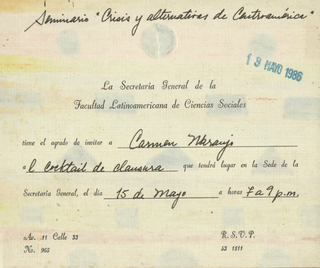 Seminario "Crisis y alternativas de Centroamérica"
19 MAYO 1986
La Secretaría General de la
Facultad Latinoamericana de Ciencias Sociales
tiene el agrado de invitar a Carmen Naranjo
al Cocktail de clausura que tendrá lugar en la Sede de la
Secretaría General, el día 15 de Mayo a horas 7 a 9 p.m.
Av. 11 Calle 33 R.S.V.P.
No. 963 53 1511